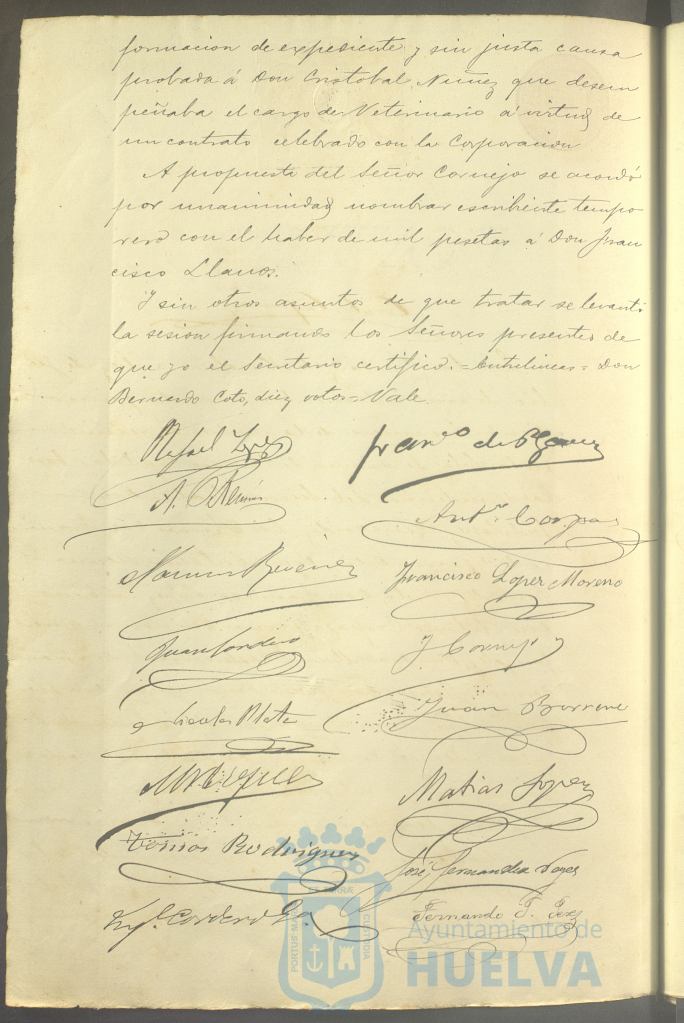 formacion de expediente y sin justa causa
probada á Don Cristobal Nuñez que desem
peñaba el cargo de Veterinario á virtud de
un contrato celebrado con la Corporacion
A propuesta del Señor Cornejo se acordó
por unanimidad nombrar escribiente tempo
rero con el haber de mil pesetas á Don Fran
cisco Llanos.
Y sin otros asuntos de que tratar se levantó
la sesion firmando los Señores presentes de
que yo el Secretario certifico.=Entrelineas= Don
Bernardo Coto, diez votos=Vale.
Rafael Lopez
Franco de P.
A.
Antº Corpas
Francisco Lopez Moreno
Juan Cordero
J. Cornejo
Nicolas Mata
Juan Borrero
Matias Lopez
Tomás Rodriguez
José Fernandez
Cordero
Fernando T.
PORTUS MARIS ET TERRAE CUSTODIA
Ayuntamiento de
HUELVA